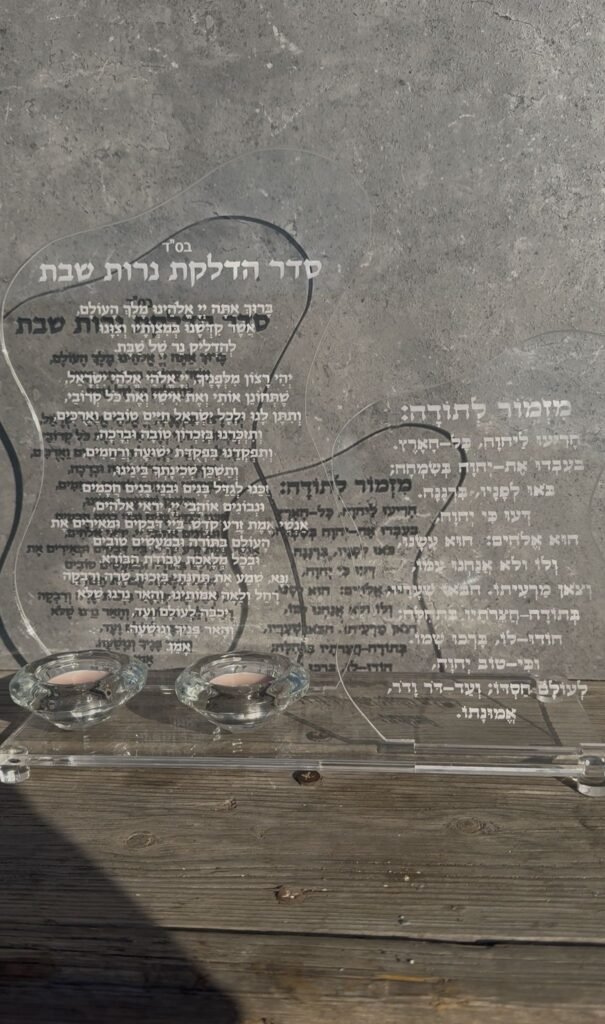 בס"ד
סדר הדלקת נרות שבת
בָּרוּךְ אַתָּה יְיָ אֱלֹהֵינוּ מֶלֶךְ הָעוֹלָם,
אֲשֶׁר קִדְּשָׁנוּ בְּמִצְוֹתָיו וְצִוָּנוּ
לְהַדְלִיק נֵר שֶׁל שַׁבָּת.
יְהִי רָצוֹן מִלְּפָנֶיךָ, יְיָ אֱלֹהַי אֱלֹהֵי יִשְׂרָאֵל,
שֶׁתְּחוֹנֵן אוֹתִי וְאֶת אִישִׁי וְאֶת כָּל קְרוֹבַי,
וְתִתֵּן לָנוּ וּלְכָל יִשְׂרָאֵל חַיִּים טוֹבִים וַאֲרֻכִּים,
וְתִזְכְּרֵנוּ בְּזִכְרוֹן טוֹבָה וּבְרָכָה,
וְתִפְקְדֵנוּ בִּפְקֻדַּת יְשׁוּעָה וְרַחֲמִים,
וְתַשְׁכֵּן שְׁכִינָתְךָ בֵּינֵינוּ,
וְזַכֵּנוּ לְגַדֵּל בָּנִים וּבְנֵי בָנִים חֲכָמִים
וּנְבוֹנִים אוֹהֲבֵי יְיָ, יִרְאֵי אֱלֹהִים,
אַנְשֵׁי אֱמֶת זֶרַע קֹדֶשׁ, בַּייָ דְּבֵקִים וּמְאִירִים אֶת
הָעוֹלָם בְּתוֹרָה וּבְמַעֲשִׂים טוֹבִים
וּבְכָל מְלֶאכֶת עֲבוֹדַת הַבּוֹרֵא.
אָנָּא, שְׁמַע אֶת תְּחִנָּתִי בִּזְכוּת שָׂרָה וְרִבְקָה
רָחֵל וְלֵאָה אִמּוֹתֵינוּ, וְהָאֵר נֵרֵנוּ שֶׁלֹּא
יִכְבֶּה לְעוֹלָם וָעֶד, וְהָאֵר
פָּנֶיךָ וְנִוָּשֵׁעָה
אָמֵן.
מִזְמוֹר לְתוֹדָה:
הָרִיעוּ לַיהוָה, כָּל-הָאָרֶץ.
עִבְדוּ אֶת-יְהוָה בְּשִׂמְחָה;
בֹּאוּ לְפָנָיו, בִּרְנָנָה.
דְּעוּ כִּי יְהוָה
הוּא אֱלֹהִים: הוּא עָשָׂנוּ
וְלוֹ וְלֹא אֲנַחְנוּ עַמּוֹ
וְצֹאן מַרְעִיתוֹ. בֹּאוּ שְׁעָרָיו
בְּתוֹדָה-חֲצֵרֹתָיו בִּתְהִלָּה;
הוֹדוּ-לוֹ, בָּרְכוּ שְׁמוֹ
כִּי-טוֹב יְהוָה
לְעוֹלָם חַסְדּוֹ; וְעַד-דֹּר וָדֹר,
אֱמוּנָתוֹ.